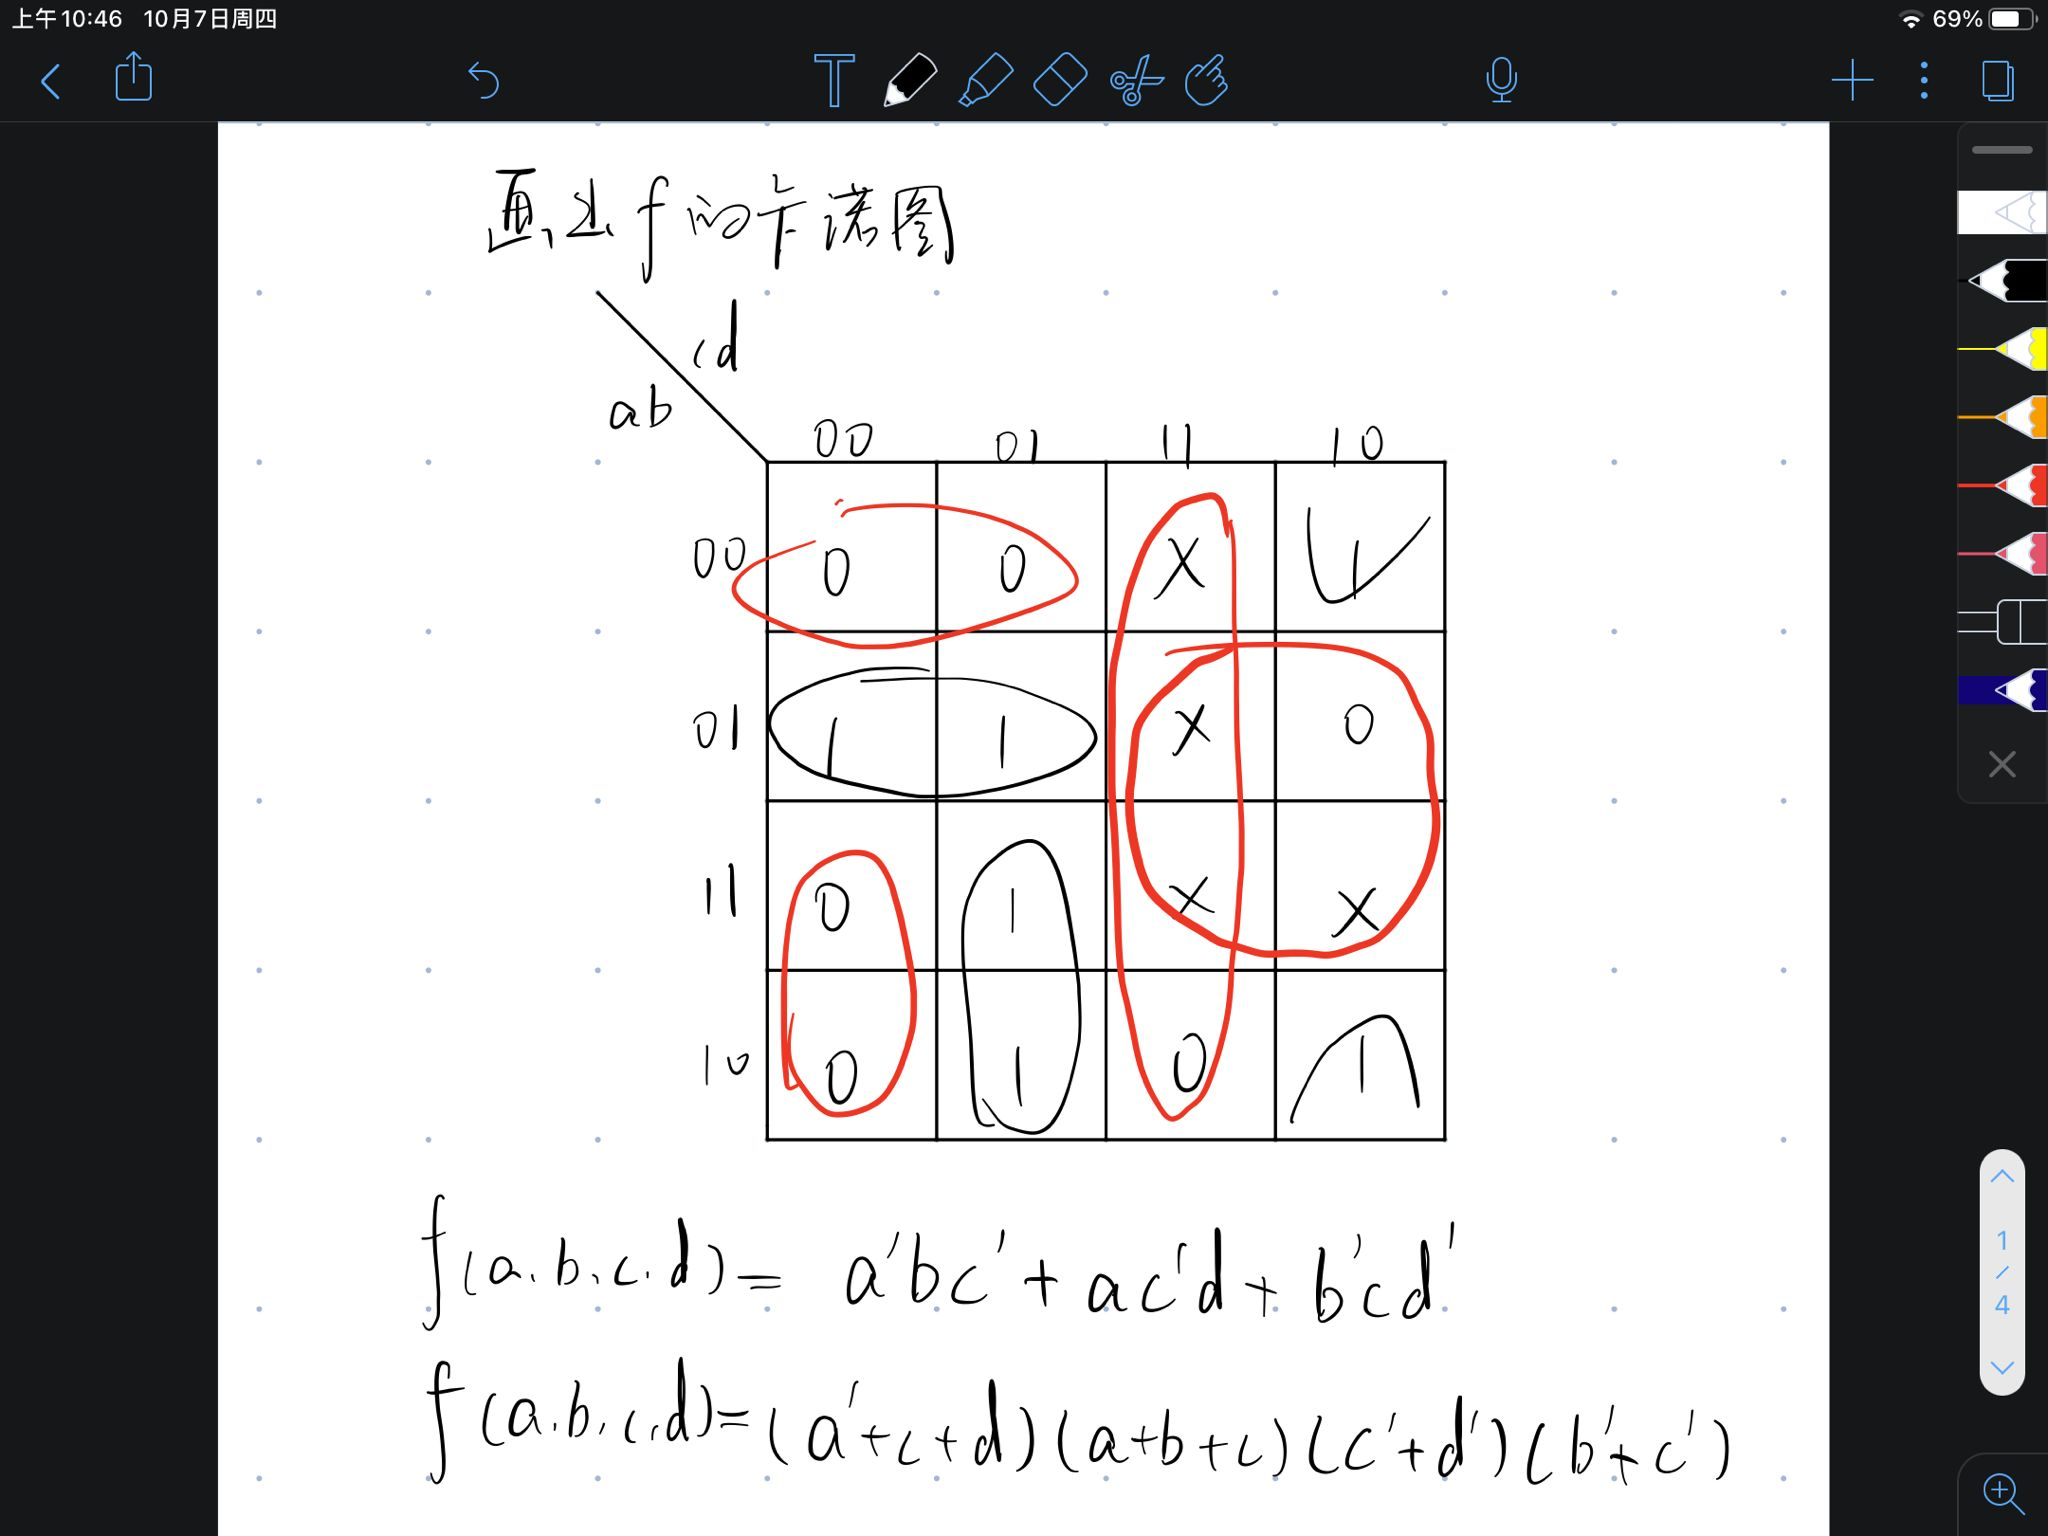 上午10:46 10月7日周四
69%
T
画出f的卡诺图
cd
ab
00 01 11 10
00 0 0 X 1
01 1 1 X 0
11 0 1 X X
10 0 1 0 1
f(a.b.c.d)= a'bc'+ac'd+b'cd'
f(a.b.c.d)=(a'+c+d)(a+b+c)(c'+d')(b'+c')
1
/
4